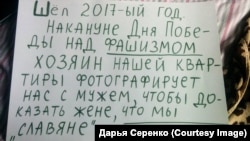 ШЁЛ 2017-ЫЙ ГОД.
НАКАНУНЕ ДНЯ ПОБЕ-
ДЫ НАД ФАШИЗМОМ
ХОЗЯИН НАШЕЙ КВАР-
ТИРЫ ФОТОГРАФИРУЕТ
НАС С МУЖЕМ, ЧТОБЫ ДО-
КАЗАТЬ ЖЕНЕ, ЧТО МЫ
"СЛАВЯНЕ"
Дарья Серенко (Courtesy Image)